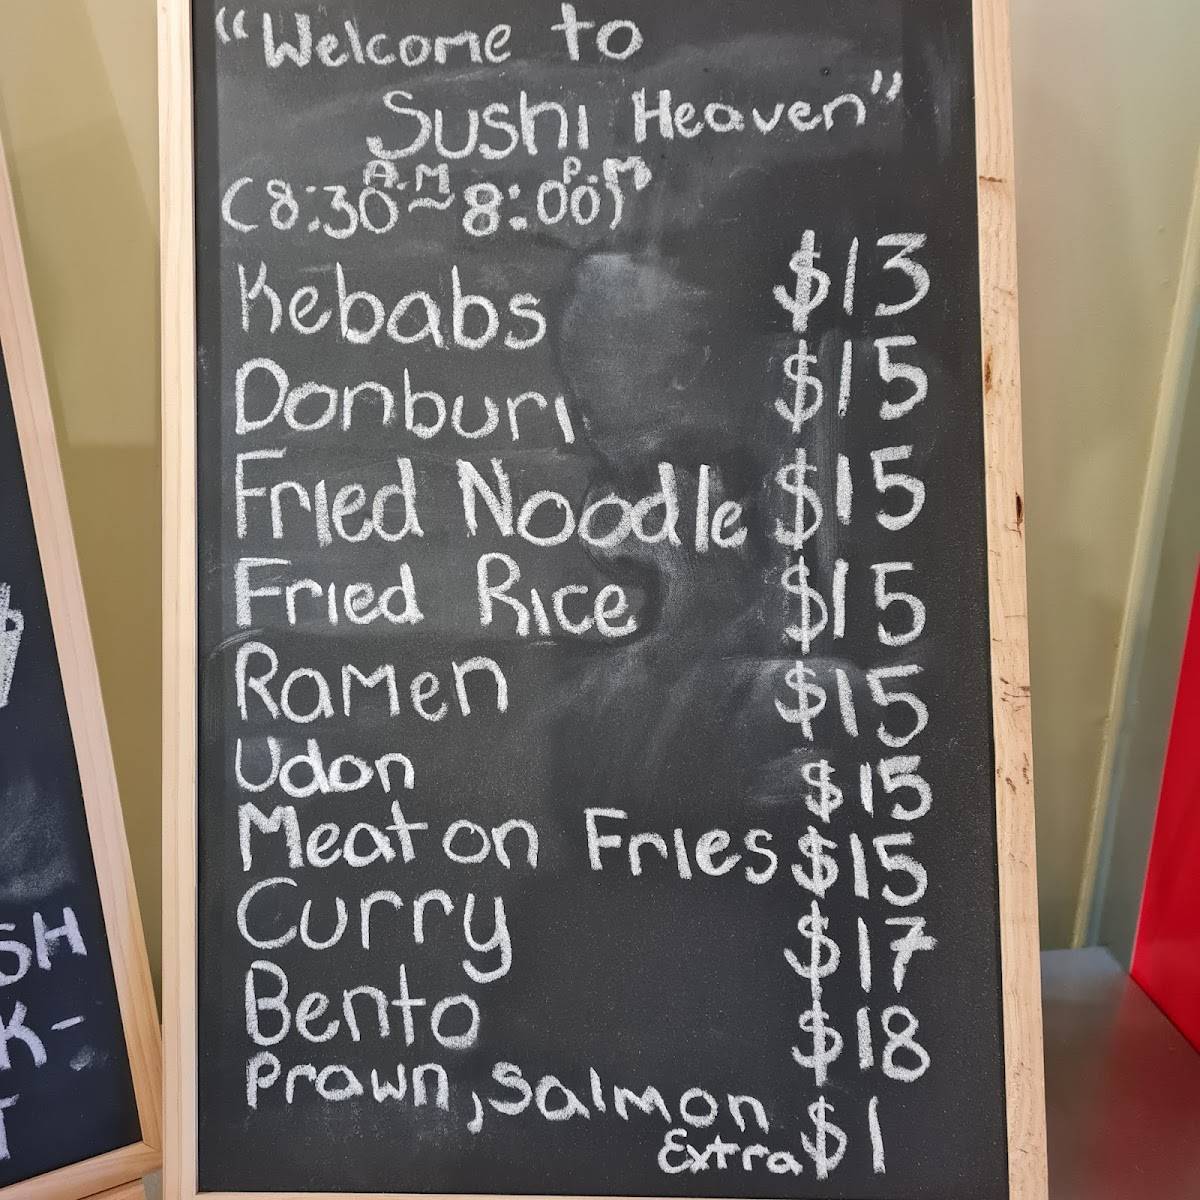 "Welcome to
Sushi Heaven"
(8:30 A.M ~ 8:00 P.M)
Kebabs $13
Donburi $15
Fried Noodle $15
Fried Rice $15
Ramen $15
Udon $15
Meat on Fries $15
Curry $17
Bento $18
Prawn, Salmon
Extra $1
SH
K-
T